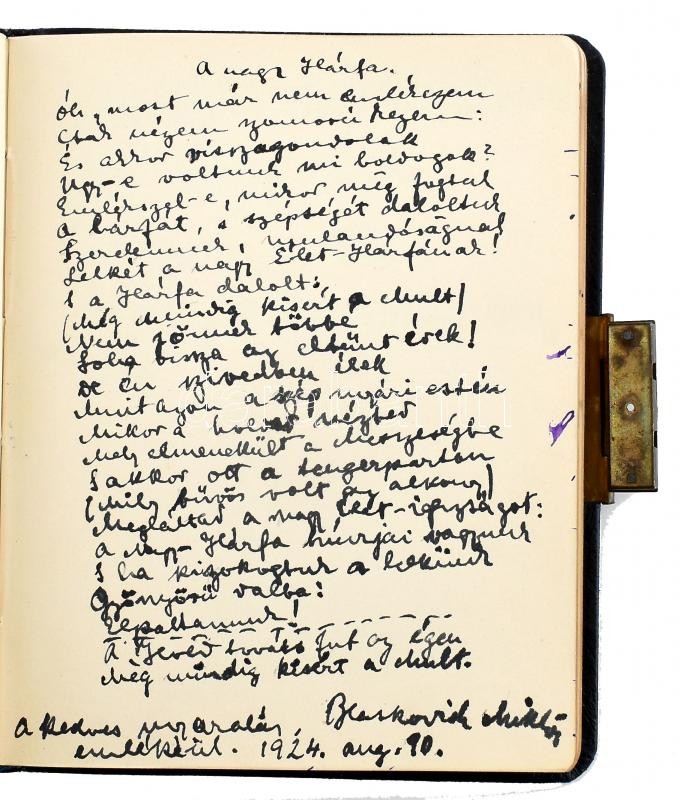 A nagy Hárfa.
Óh, most már nem emlékezem
Csak nézem szomorú kezem:
És akkor visszagondolok
Ugy-e voltunk mi boldogok?
Emlékszel-e, mikor még fogtuk
A hárfát, s szépségét daloltuk
Szerelmünk, mulandóságnak
Lelkét a nagy Élet-Hárfának!
S a Hárfa dalolt:
(Még mindig kisért a Mult)
Nem jönnek többé
Soha vissza az eltünt évek!
De én szivedben élek
Mint azon a szép nyári estén
Mikor a holdat nézted
Mely elmenekült a Messzeségbe
S akkor ott a tengerparton
(Mily bűvös volt az alkony)
Megláttad a nagy Élet-igazságot:
A nagy-Hárfa húrjai vagyunk
S ha kizokogtuk a lelkünk
Gyönyörű dalba:
Elpattanunk!
A tovább fut az égen
Még mindig kisért a Mult.
A kedves nyaralás Blaskovich Miklós
emlékéül. 1924. aug. 10.